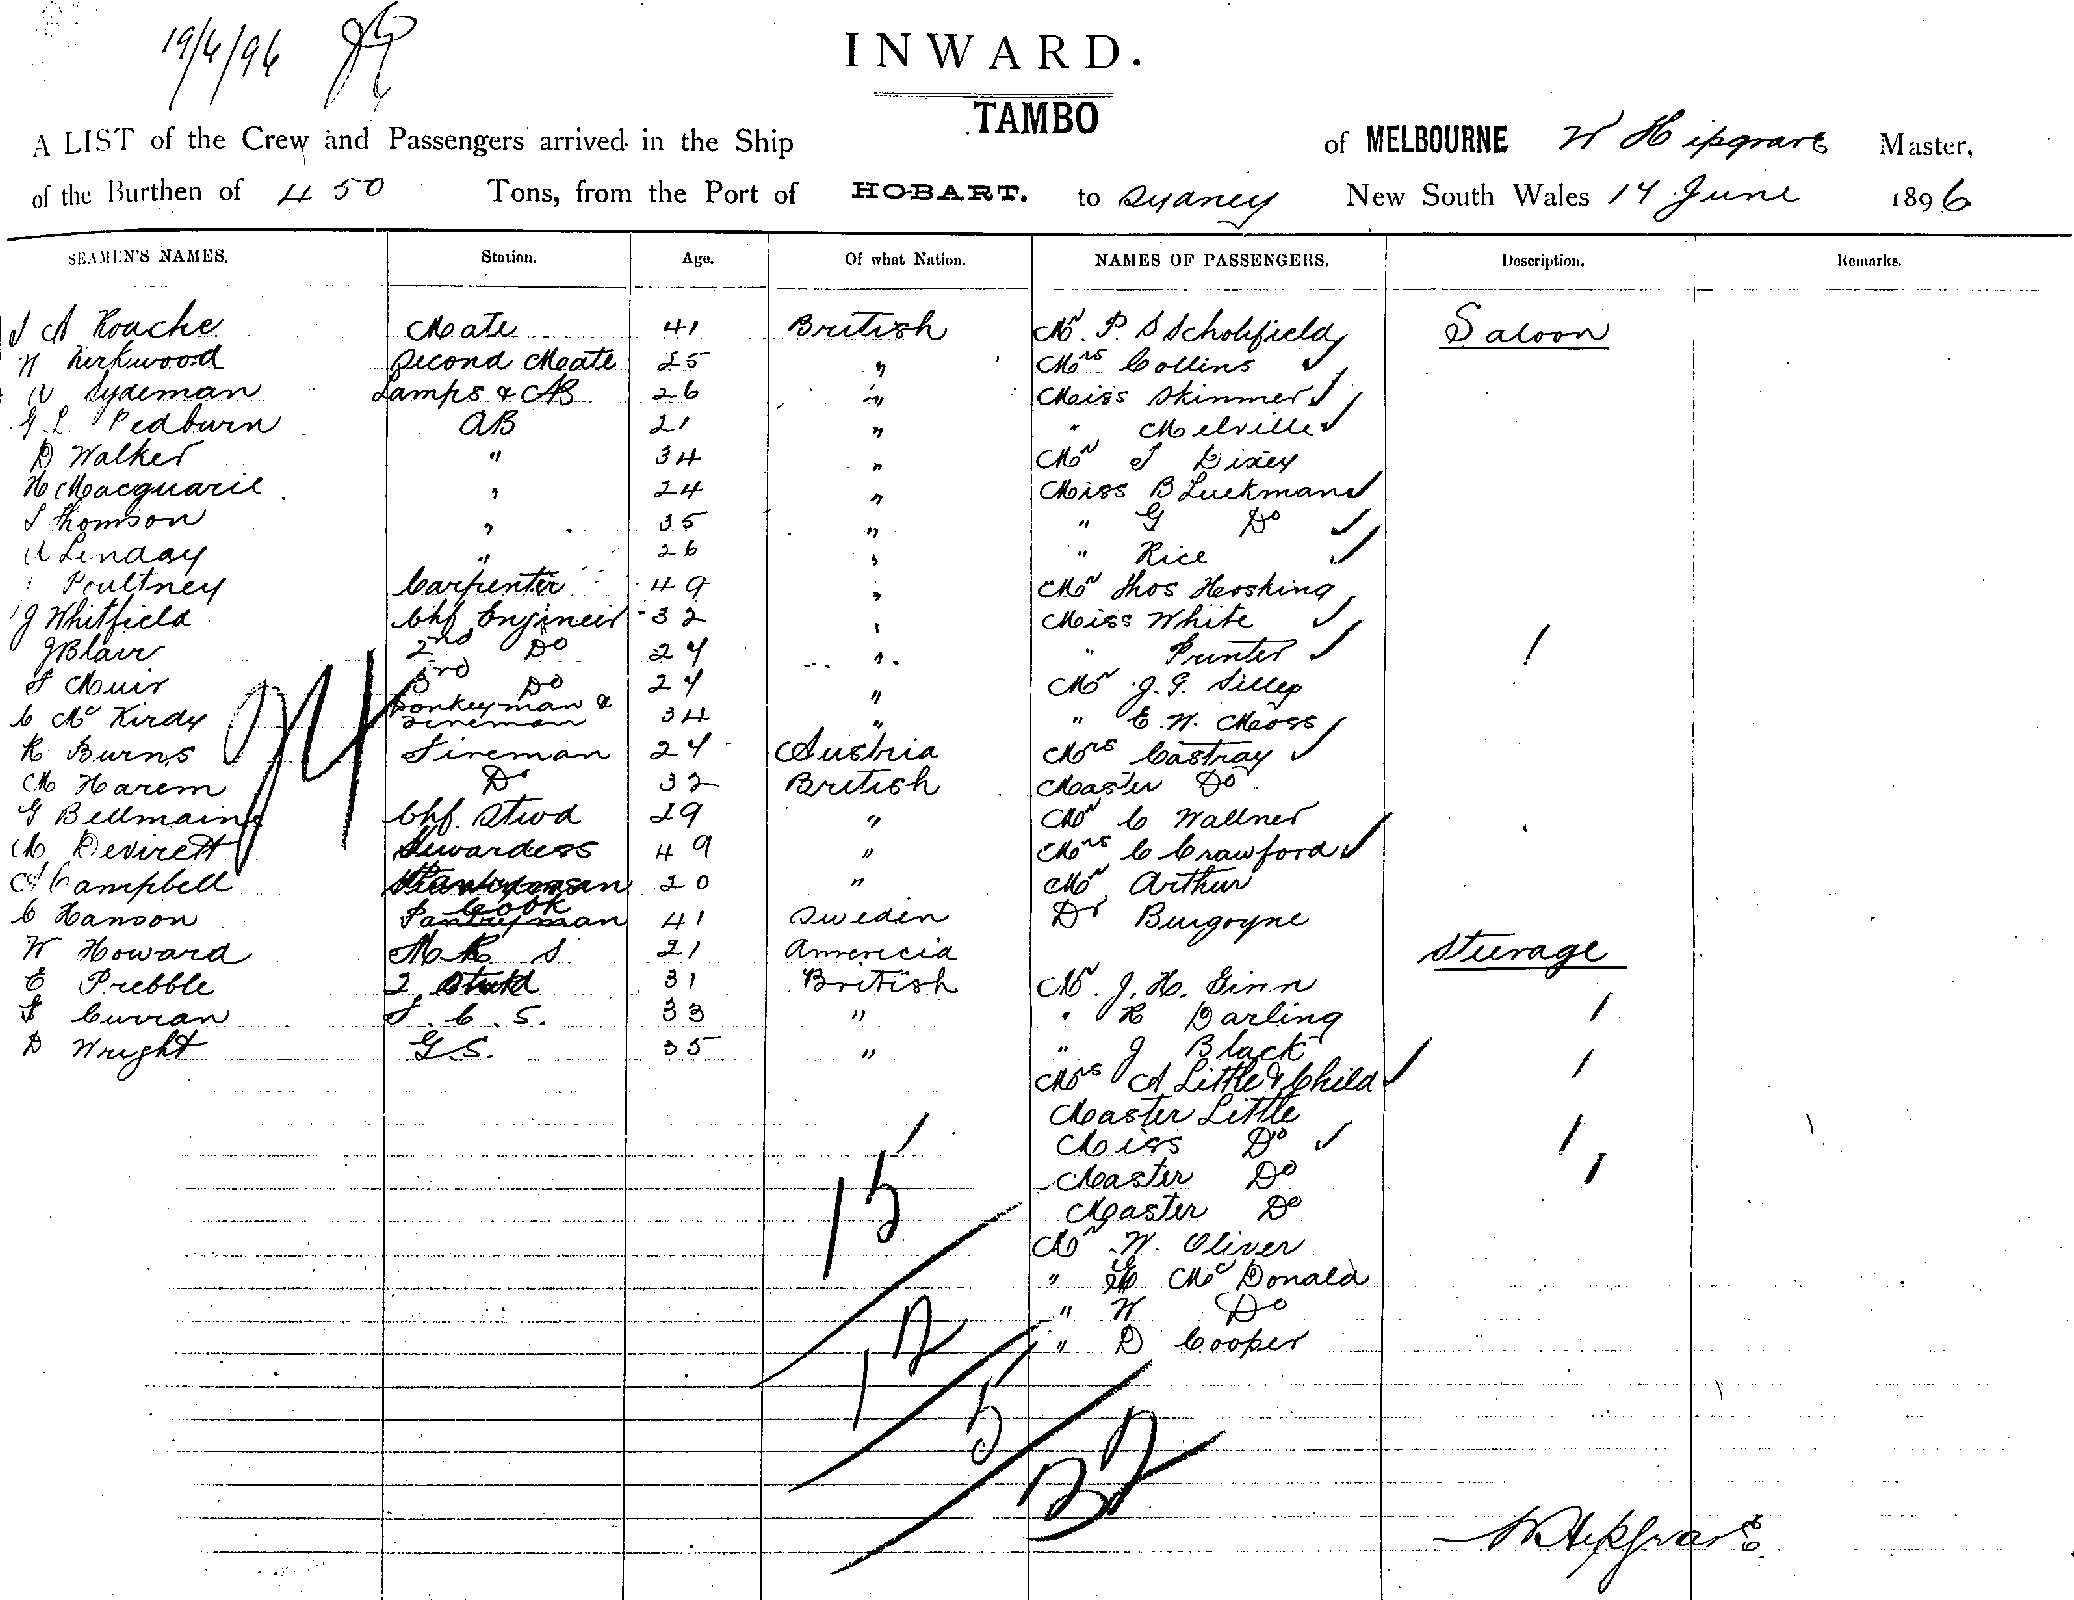 19/6/96
INWARD.
A LIST of the Crew and Passengers arrived in the Ship TAMBO of MELBOURNE W Hipgrave Master,
of the Burthen of 450 Tons, from the Port of HOBART. to Sydney New South Wales 14 June 1896
SEAMEN'S NAMES. Station. Age. Of what Nation. NAMES OF PASSENGERS. Description. Remarks.
A Roache Mate 41 British Mr P. S Scholefield Saloon
W Kirkwood Second Mate 25 " Mrs Collins
Sydeman Lamps & AB 26 " Miss Skinner
G L Pedburn AB 21 " " Melville
D Walker " 34 " Mr S Dixey
H Macquarie " 24 " Miss B Luckman
S Thomson " 35 " " G Do
A Lenday " 26 " " Rice
Poultney Carpenter 49 " Mr Thos Hosking
J Whitfield Chf Engineer 32 " Miss White
J Blair 2nd Do 24 " " Printer
S Muir 3rd Do 24 " Mr J. G.
C Mc Kirdy Donkeyman & Fireman 34 " " E. W. Moss
R Burns Fireman 24 Austria Mrs Castray
M Harem Do 32 British Master Do
G Bellmaine Chf. Stwd 29 " Mr C Wallner
M Devirett Stewardess 49 " Mrs C Crawford
A Campbell 20 " Mr Arthur
C Hanson Cook Pantryman 41 Sweden Dr Burgoyne
W Howard M R S 21 Amercia Steerage
E Prebble 2 Stwd 31 British Mr. J. H. Ginn
S Curran F. C. S. 33 " " R Darling
D Wright G S. 35 " " J Black
Mrs A Little & Child
Master Little
Miss Do
Master Do
Master Do
Mr W. Oliver
" Mc Donald
" W Do
" D Cooper
15
12
5
32
W Hipgrave